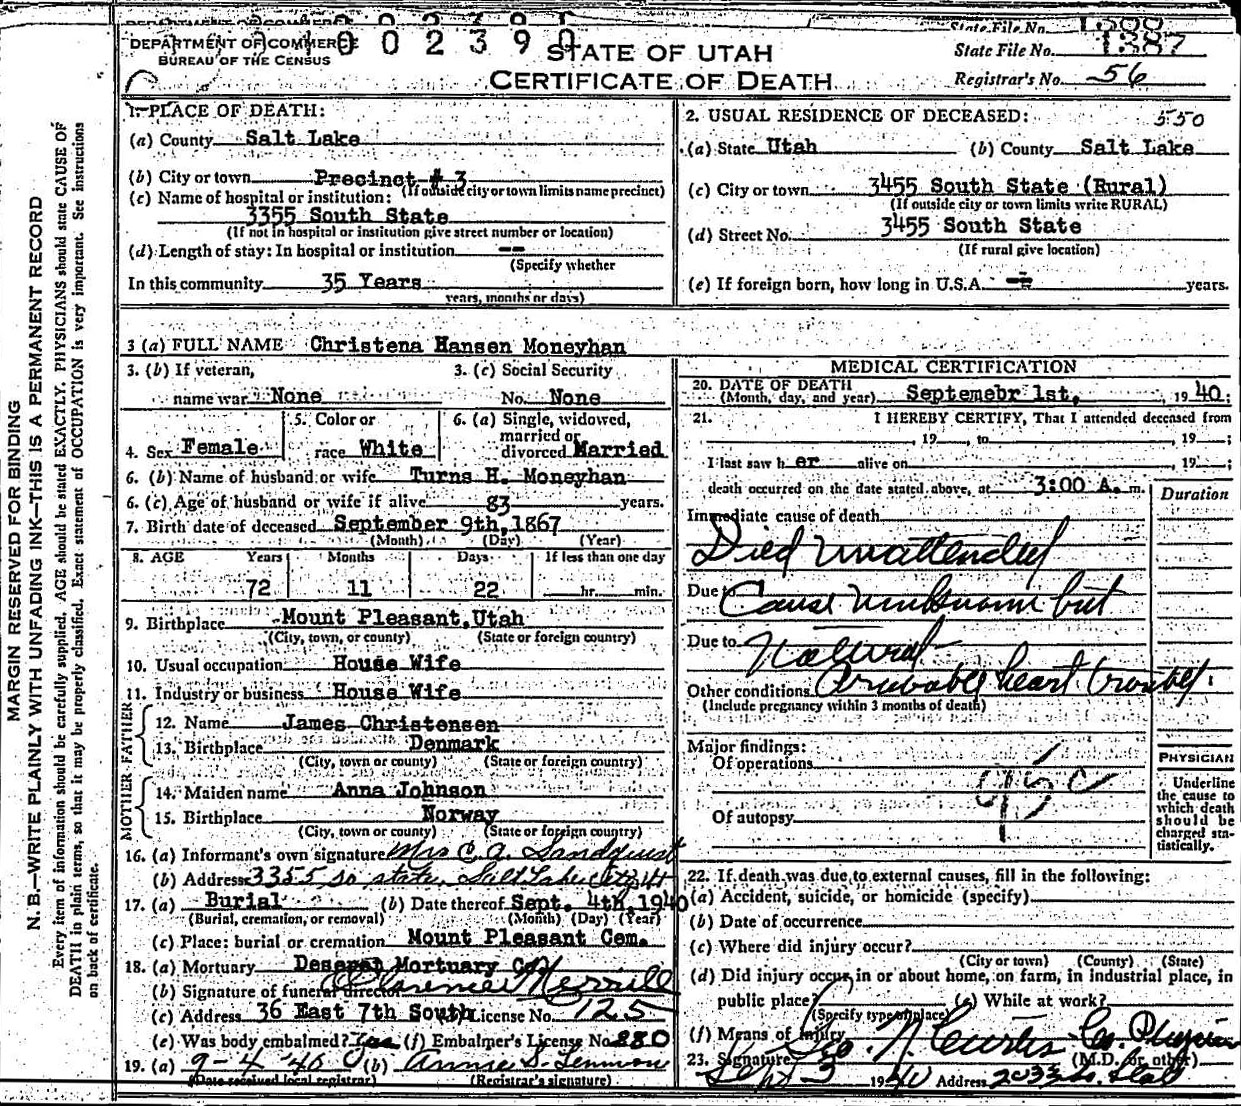 DEPARTMENT OF COMMERCE
BUREAU OF THE CENSUS
002390
STATE OF UTAH
CERTIFICATE OF DEATH
State File No. 1388
State File No. 1387
Registrar's No. 56
MARGIN RESERVED FOR BINDING
N. B.—WRITE PLAINLY WITH UNFADING INK—THIS IS A PERMANENT RECORD
Every item of information should be carefully supplied. AGE should be stated EXACTLY. PHYSICIANS should state CAUSE OF
DEATH in plain terms, so that it may be properly classified. Exact statement of OCCUPATION is very important. See instructions
on back of certificate.
1. PLACE OF DEATH:
(a) County Salt Lake
(b) City or town Precinct # 3
(If outside city or town limits name precinct)
(c) Name of hospital or institution:
3355 South State
(If not in hospital or institution give street number or location)
(d) Length of stay: In hospital or institution --
(Specify whether
In this community 35 Years
years, months or days)
2. USUAL RESIDENCE OF DECEASED: 550
(a) State Utah (b) County Salt Lake
(c) City or town 3455 South State (Rural)
(If outside city or town limits write RURAL)
(d) Street No. 3455 South State
(If rural give location)
(e) If foreign born, how long in U.S.A. -- years.
3 (a) FULL NAME Christena Hansen Moneyhan
3. (b) If veteran,
name war None
3. (c) Social Security
No. None
4. Sex Female
5. Color or
race White
6. (a) Single, widowed,
married or
divorced Married
6. (b) Name of husband or wife Turns H. Moneyhan
6. (c) Age of husband or wife if alive 83 years.
7. Birth date of deceased September 9th, 1867
(Month) (Day) (Year)
8. AGE Years Months Days If less than one day
72 11 22 hr. min.
9. Birthplace Mount Pleasant, Utah
(City, town, or county) (State or foreign country)
10. Usual occupation House Wife
11. Industry or business House Wife
FATHER
12. Name James Christensen
13. Birthplace Denmark
(City, town or county) (State or foreign country)
MOTHER
14. Maiden name Anna Johnson
15. Birthplace Norway
(City, town or county) (State or foreign country)
16. (a) Informant's own signature Mrs C. A. Sandquist
(b) Address 3355 So State Salt Lake City Ut
17. (a) Burial (b) Date thereof Sept. 4th, 1940
(Burial, cremation, or removal) (Month) (Day) (Year)
(c) Place: burial or cremation Mount Pleasant Cem.
18. (a) Mortuary Deseret Mortuary Co.
(b) Signature of funeral director Clarence Merrill
(c) Address 36 East 7th South (d) License No. 125
(e) Was body embalmed? Yes (f) Embalmer's License No. 280
19. (a) 9-4-40 (b) Annie S.
(Date received local registrar) (Registrar's signature)
MEDICAL CERTIFICATION
20. DATE OF DEATH
(Month, day, and year) Septemebr 1st, 1940;
21. I HEREBY CERTIFY, That I attended deceased from
, 19 , to , 19 ;
I last saw her alive on , 19 ;
death occurred on the date stated above, at 3:00 A. m.
Duration
Immediate cause of death
Died Unattended
Due to Cause unknown but
Due to Natural
Other conditions Probable heart trouble.
(Include pregnancy within 3 months of death)
Major findings:
Of operations
95c
Of autopsy
PHYSICIAN
Underline
the cause to
which death
should be
charged sta-
tistically.
22. If death was due to external causes, fill in the following:
(a) Accident, suicide, or homicide (specify)
(b) Date of occurrence
(c) Where did injury occur?
(City or town) (County) (State)
(d) Did injury occur in or about home, on farm, in industrial place, in
public place? (e) While at work?
(Specify type of place)
(f) Means of injury
23. Signature Geo. N. Curtis Co. Physician
(M.D. or other)
Sept 3 1940 Address 2033 So. State